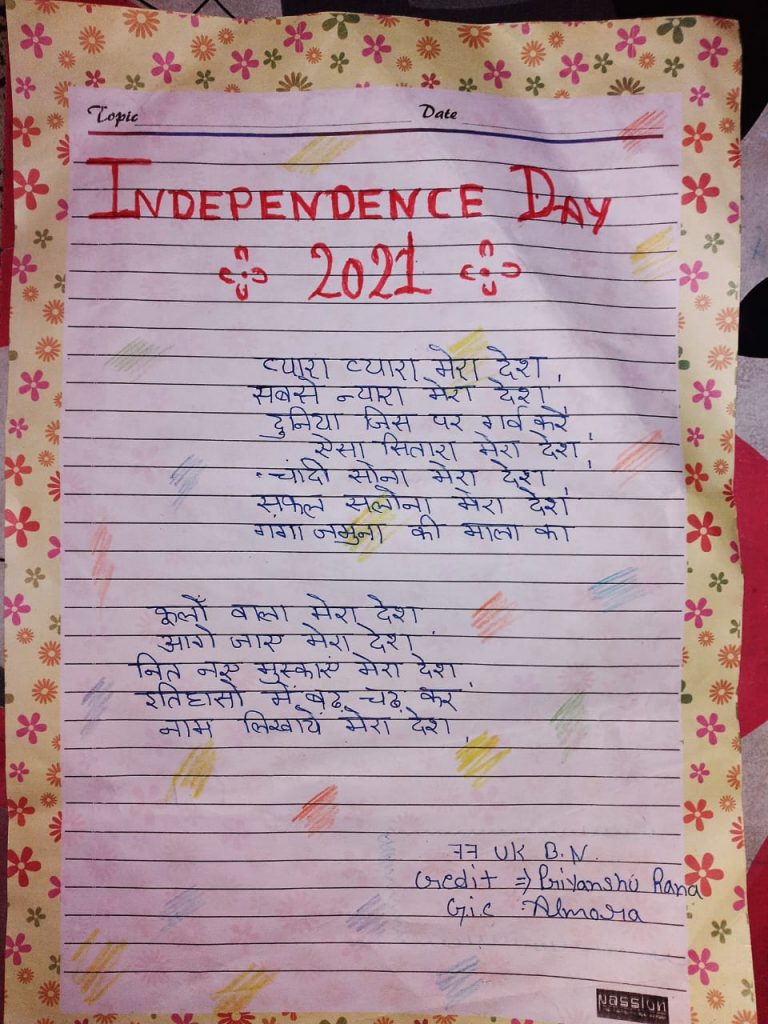 Topic
Date
INDEPENDENCE DAY
2021
प्यारा प्यारा मेरा देश,
सबसे न्यारा मेरा देश,
दुनिया जिस पर गर्व करे,
ऐसा सितारा मेरा देश,
चांदी सोना मेरा देश,
सफल सलोना मेरा देश,
गंगा जमुना की माला का
फूलों वाला मेरा देश
आगे जाए मेरा देश
नित नए मुस्काए मेरा देश,
इतिहासों में बढ़ चढ़ कर
नाम लिखाये मेरा देश,
77 UK B.N.
Credit ⇒ Priyanshu Rana
G.i.c Almora
passion